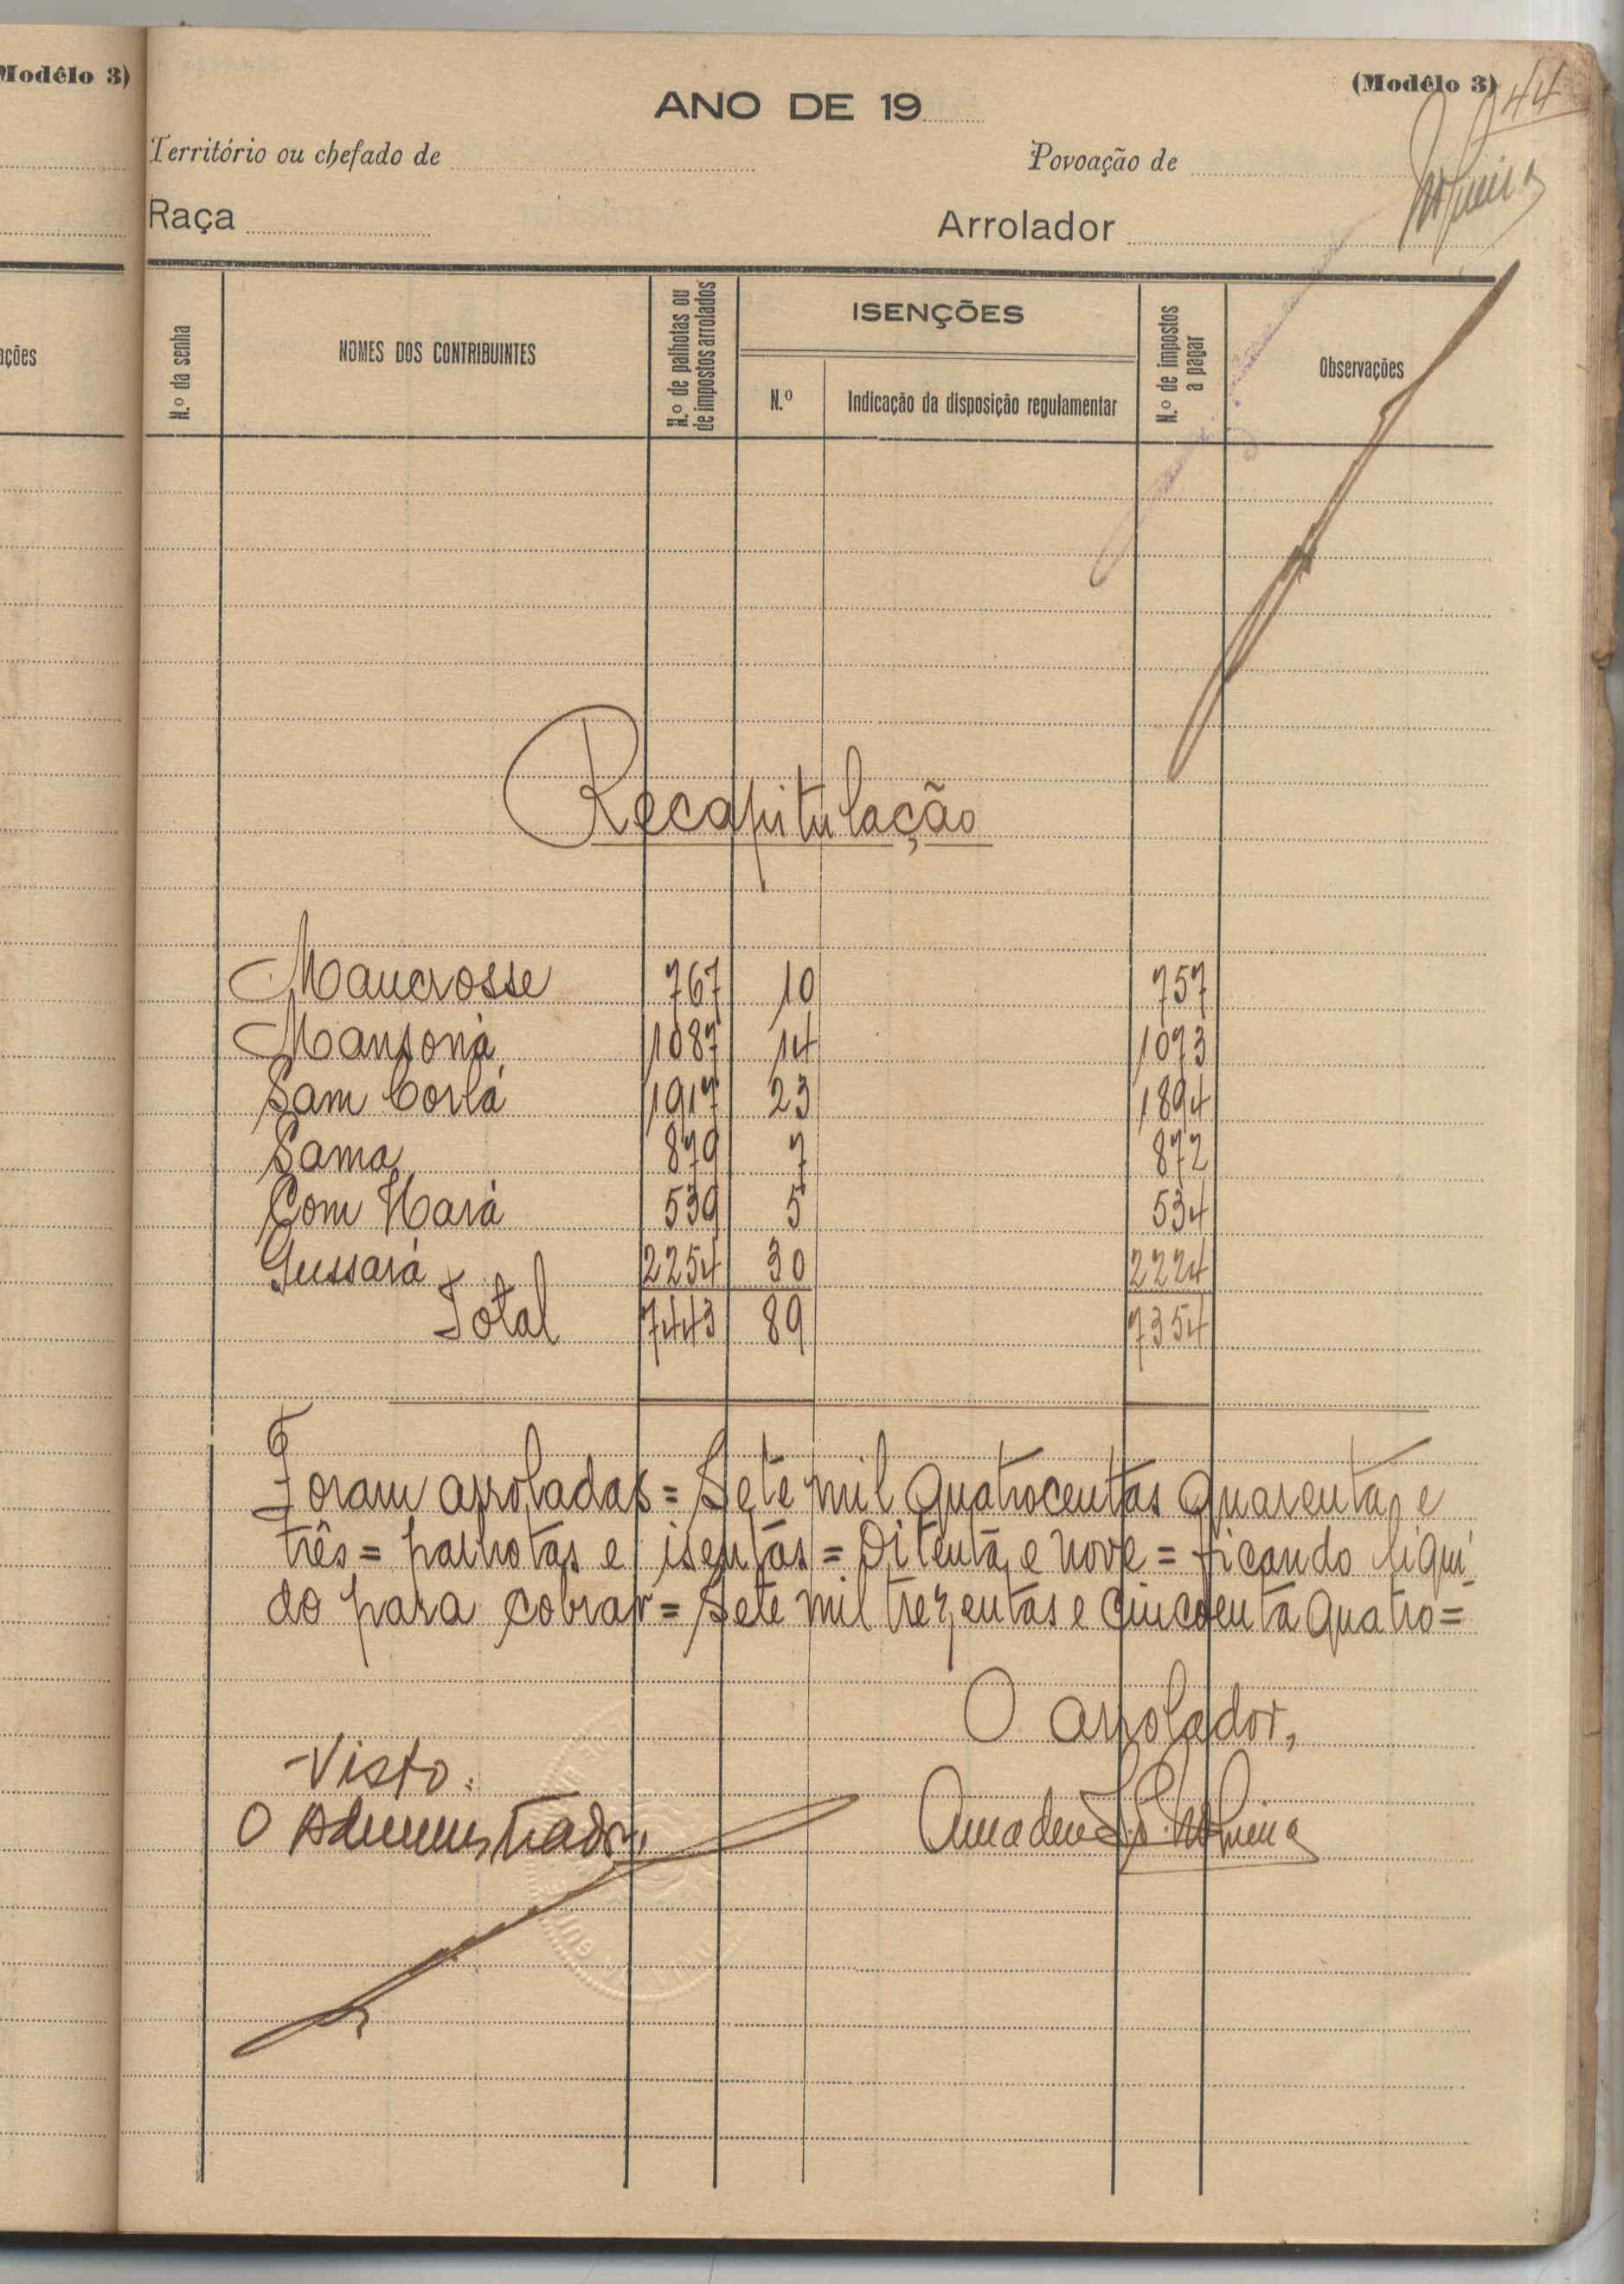 Modêlo 3)
(Modêlo 3)
44
ANO DE 19
Território ou chefado de
Povoação de
Raça
Arrolador
ações
N.º da senha
NOMES DOS CONTRIBUINTES
N.º de palhotas ou de impostos arrolados
ISENÇÕES
N.º
Indicação da disposição regulamentar
N.º de impostos a pagar
Observações
Recapitulação
Maucrosse 767 10 757
Mansoná 1087 14 1073
Sam Corlá 1917 23 1894
Sama 879 7 872
Com Hará 539 5 534
Gussará 2254 30 2224
Total 7443 89 7354
Foram arroladas = Sete mil quatrocentas quarenta e
três = palhotas e isentas = Oitenta e nove = ficando liqui-
do para cobrar = Sete mil trezentas e cincoenta quatro =
O arrolador,
Visto.
O Administrador,
Amadeu